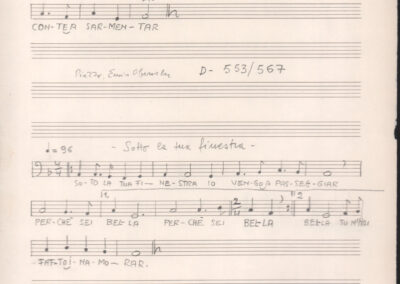 CON-TEA SAR-MEN-TAR
D- 553/567
♩=96 - Sotto la tua finestra -
SO-TO LA TUA FI- NE-STRA IO VEN-GO A PAS-SEG-GIAR
PER-CHÈ SEI BEL-LA PER-CHÈ SEI BEL-LA BEL-LA TU M'HAI
FAT-TO I-NA-MO-RAR.